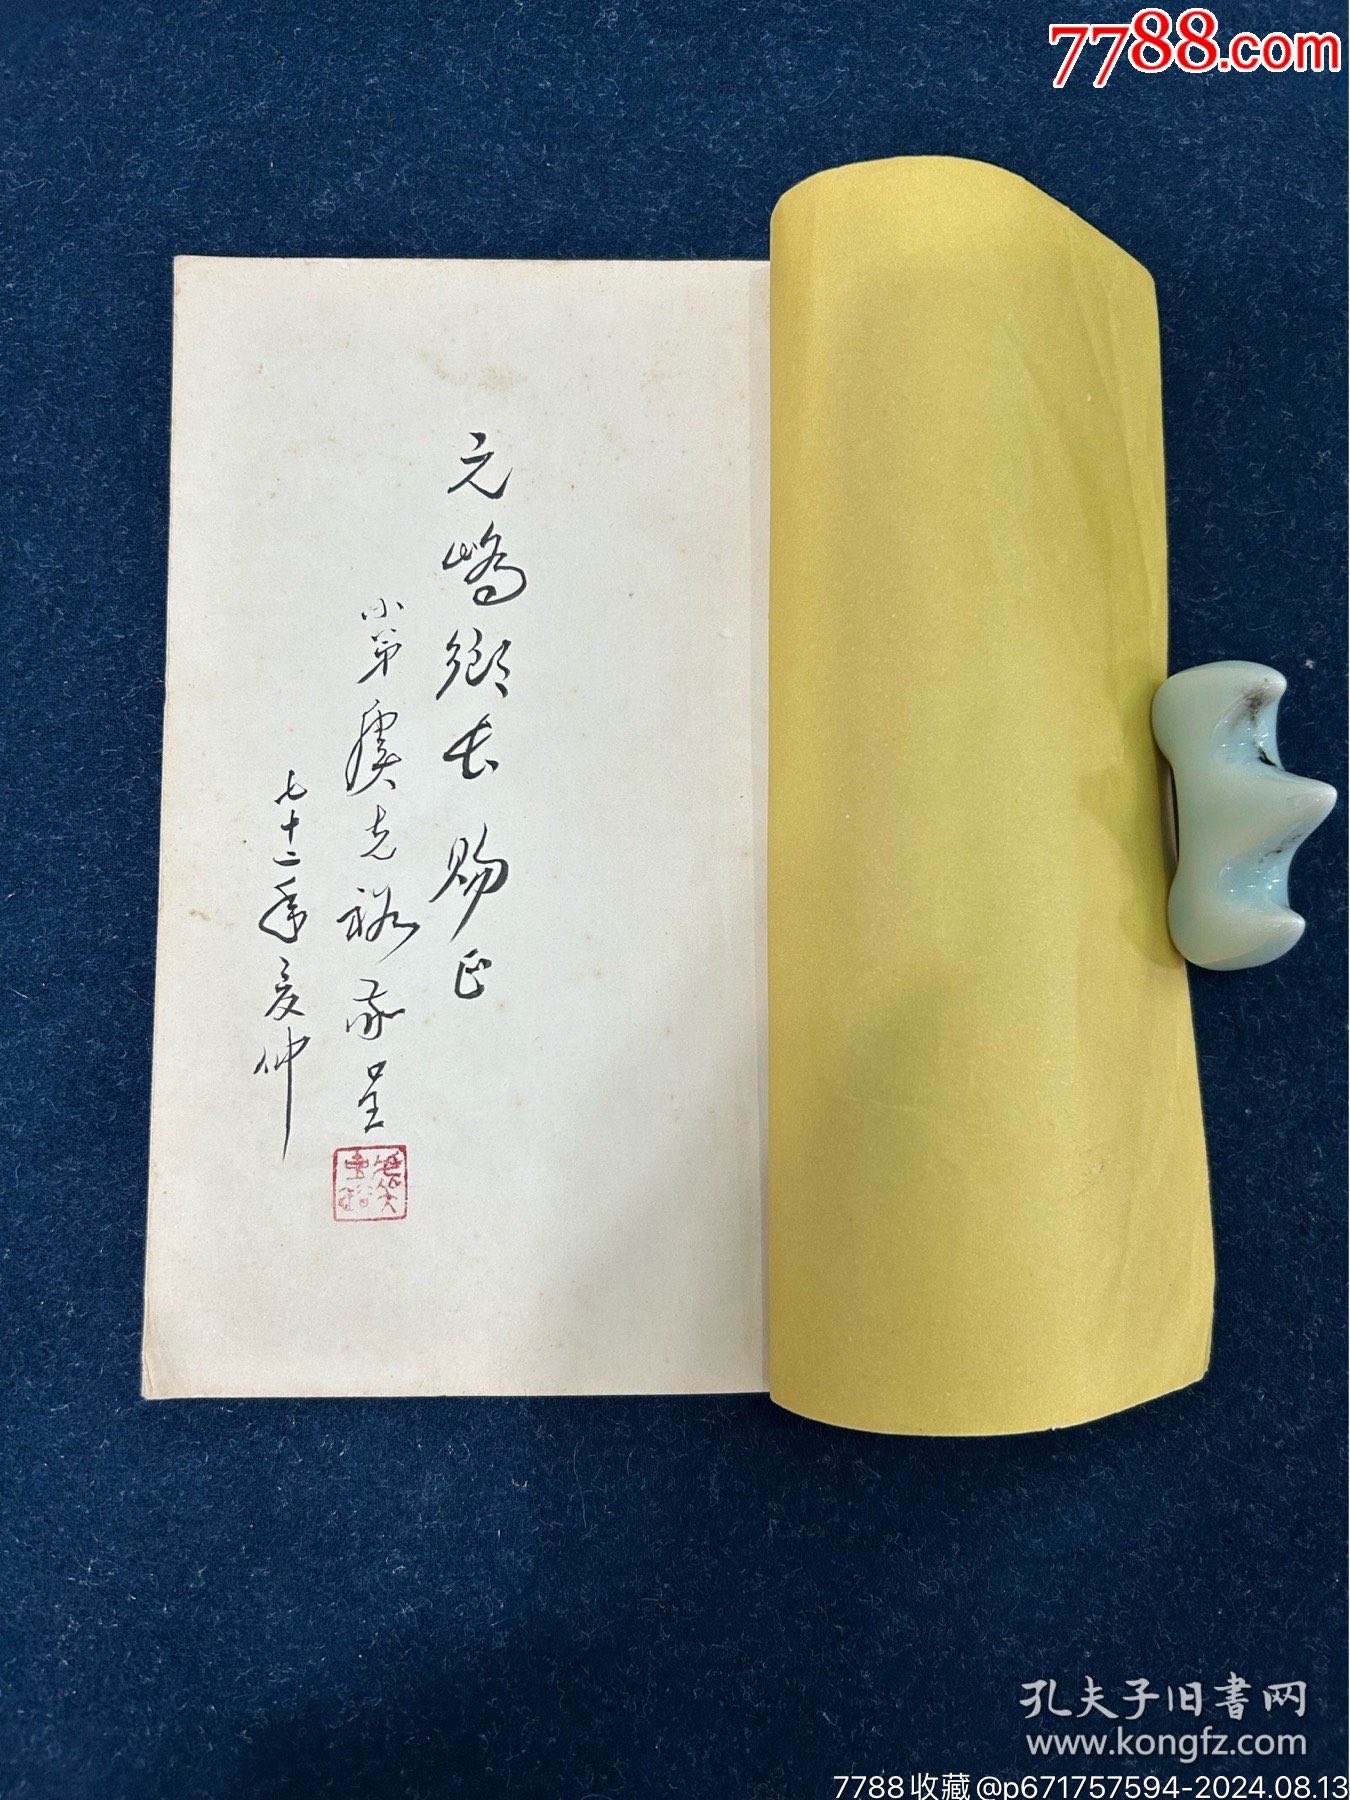 7788.com
元嶠鄉長賜正
小弟虞克裕敬呈
七十二年夏仲
孔夫子旧書网
www.kongfz.com
7788收藏@p671757594-2024.08.13